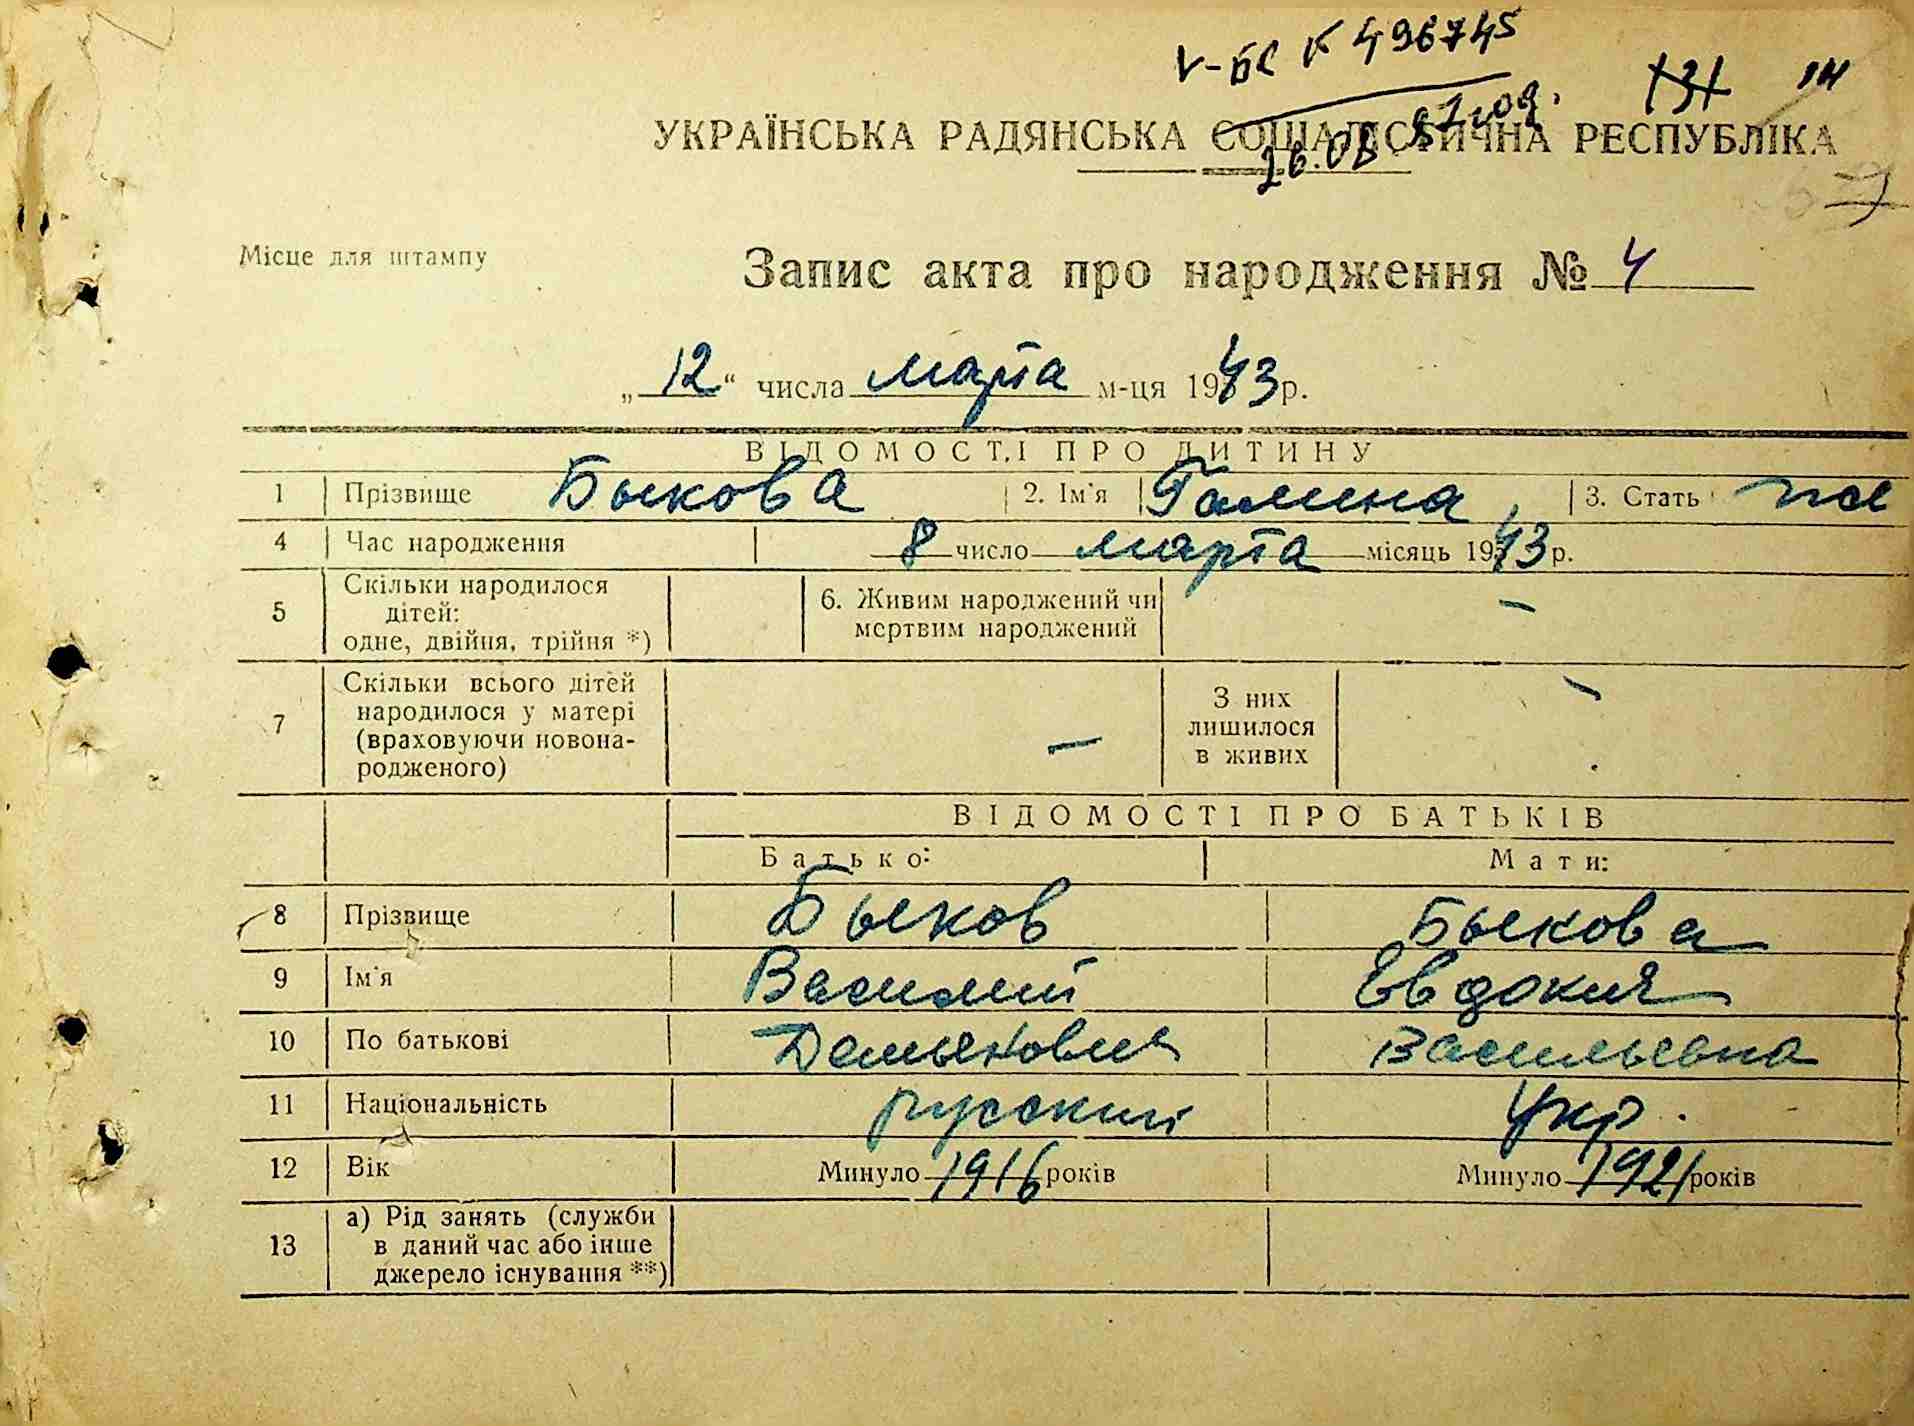 V-БС № 496745
26.08
УКРАЇНСЬКА РАДЯНСЬКА СОЦІАЛІСТИЧНА РЕСПУБЛІКА
Місце для штампу
Запис акта про народження № 4
„12“ числа марта м-ця 1943 р.
ВІДОМОСТІ ПРО ДИТИНУ
1 Прізвище Быкова 2. Ім'я Галина 3. Стать жс
4 Час народження 8 число марта місяць 1943 р.
5 Скільки народилося дітей: одне, двійня, трійня *) 6. Живим народжений чи мертвим народжений –
7 Скільки всього дітей народилося у матері (враховуючи новонародженого) – З них лишилося в живих –
ВІДОМОСТІ ПРО БАТЬКІВ
Батько: Мати:
8 Прізвище Быков Быкова
9 Ім'я Василий Евдокия
10 По батькові Демьянович Васильевна
11 Національність русский укр.
12 Вік Минуло 1916 років Минуло 1921 років
13 а) Рід занять (служби в даний час або інше джерело існування **)